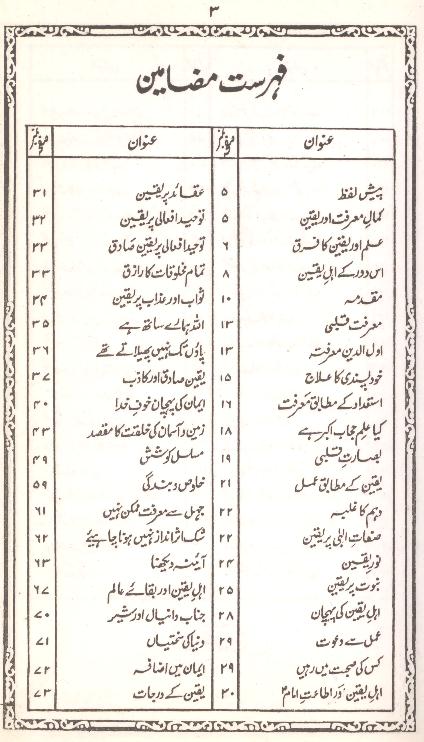 ۳
فہرست مضامین
عنوان صفحہ نمبر عنوان صفحہ نمبر
پیش لفظ ۵
کمالِ معرفت اور یقین ۵
علم اور یقین کا فرق ۶
اس دور کے اہلِ یقین ۸
مقدمہ ۱۰
معرفت قلبی ۱۳
اول الدین معرفتہ ۱۳
خود پسندی کا علاج ۱۵
استعداد کے مطابق معرفت ۱۶
کیا علم حجاب اکبر ہے ۱۸
بصارتِ قلبی ۱۹
یقین کے مطابق عمل ۲۱
وہم کا غلبہ ۲۲
صفات الٰہی پر یقین ۲۲
نورِ یقین ۲۴
نبوت پر یقین ۲۵
اہلِ یقین کی پہچان ۲۸
عمل سے دعوت ۲۹
کس کی صحبت میں رہیں ۲۹
اہل یقین اور اطاعتِ امامؑ ۳۰
عقائد پر یقین ۳۱
توحید افعالی پر یقین ۳۲
توحید افعالی پر یقینِ صادق ۳۳
تمام مخلوقات کا رازق ۳۳
ثواب اور عذاب پر یقین ۳۴
اللہ ہمارے ساتھ ہے ۳۵
پاؤں تک نہیں پھیلاتے تھے ۳۶
یقین صادق اور کاذب ۳۷
ایمان کی پہچان خوفِ خدا ۴۰
زمین و آسمان کی خلقت کا مقصد ۴۳
مسلسل کوشش ۴۹
خلوص و بندگی ۵۹
جہل سے معرفت ممکن نہیں ۶۱
شک اثر انداز نہیں ہونا چاہیئے ۶۲
آئینہ دیکھنا ۶۳
اہل یقین اور بقائے عالم ۶۷
جناب دانیال اور شیر ۷۰
دنیا کی سختیاں ۷۱
ایمان میں اضافہ ۷۲
یقین کے درجات ۷۳